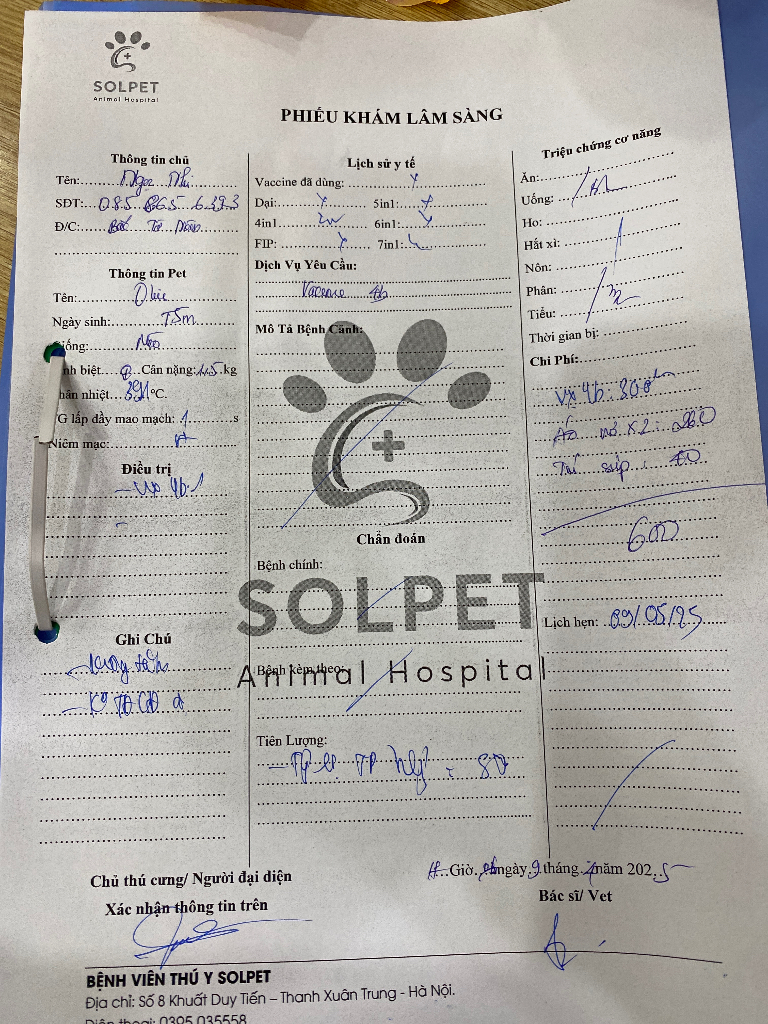 SOLPET
Animal Hospital
PHIẾU KHÁM LÂM SÀNG
Thông tin chủ
Tên: Ngọc Nhi
SĐT: 085 865 6393
Đ/C: Bắc Từ Liêm
Thông tin Pet
Tên:
Ngày sinh: 7.5m
Giống: Mèo
Tính biệt Cân nặng: 4.5 kg
Thân nhiệt °C.
TG lấp đầy mao mạch: 1 s
Niêm mạc:
Điều trị
- Vx 4b.1
Ghi Chú
Lịch sử y tế
Vaccine đã dùng: x
Dại: x 5in1: x
4in1 6in1:
FIP: x 7in1:
Dịch Vụ Yêu Cầu:
Vaccine 4b
Mô Tả Bệnh Cảnh:
Chẩn đoán
Bệnh chính:
SOLPET
Animal Hospital
Bệnh kèm theo:
Tiên Lượng:
Triệu chứng cơ năng
Ăn:
Uống:
Ho:
Hắt xì:
Nôn:
Phân:
Tiểu:
Thời gian bị:
Chi Phí:
Vx 4b: 300
x2: 260
: 40
600
Lịch hẹn: 09/05/25
Chủ thú cưng/ Người đại diện
Xác nhận thông tin trên
Giờ ngày 9 tháng 4 năm 2025
Bác sĩ/ Vet
BỆNH VIỆN THÚ Y SOLPET
Địa chỉ: Số 8 Khuất Duy Tiến – Thanh Xuân Trung - Hà Nội.
Điện thoại: 0395 035558